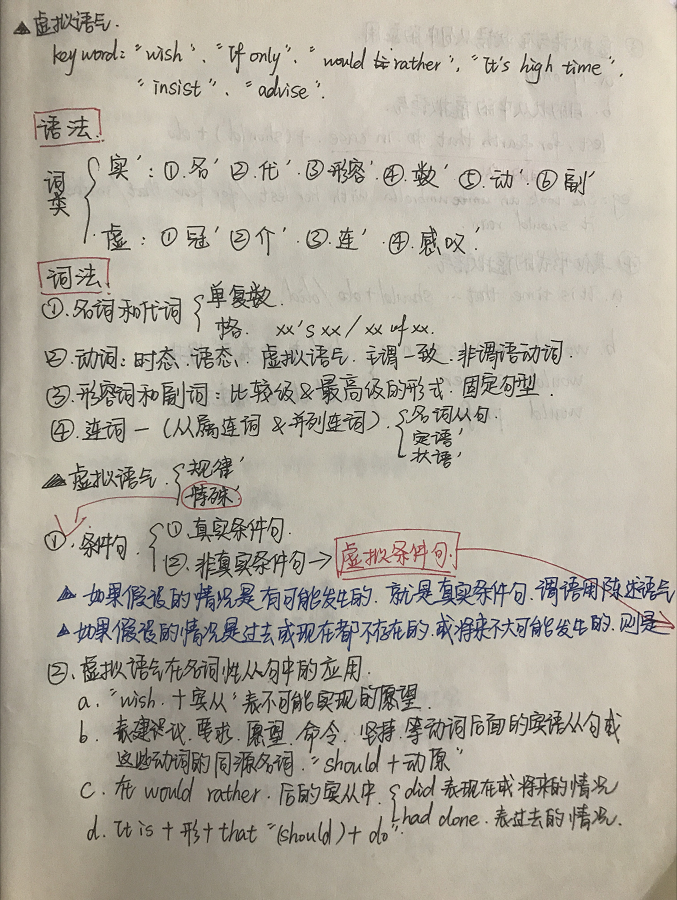 ▲虚拟语气.
key word: "wish"、"If only"、"would rather"、"It's high time"、
"insist"、"advise".
语法.
词类 { 实': ①.名' ②.代' ③形容' ④.数' ⑤.动' ⑥副'
虚: ①冠' ②介' ③.连' ④.感叹'
词法.
①.名词和代词 { 单复数.
格. xx's xx / xx of xx.
②.动词: 时态.语态.虚拟语气.主谓一致.非谓语动词.
③形容词和副词: 比较级&最高级的形式.固定句型.
④.连词—(从属连词&并列连词). { 名词从句.
定语'
状语'
▲虚拟语气. { 规律'
特殊'
①.条件句. { ①.真实条件句.
②.非真实条件句→虚拟条件句.
▲如果假设的情况是有可能发生的.就是真实条件句.谓语用陈述语气
▲如果假设的情况是过去或现在都不存在的.或将来不大可能发生的.则是
②.虚拟语气在名词性从句中的应用.
a."wish.+宾从'表不可能实现的愿望.
b. 表建议.要求.愿望.命令.坚持.等动词后面的宾语从句或
这些动词的同源名词."should+动原"
c. 在would rather.后的宾从中. { did 表现在或将来的情况
had done.表过去的情况.
d. It is + 形 + that "(should) + do".